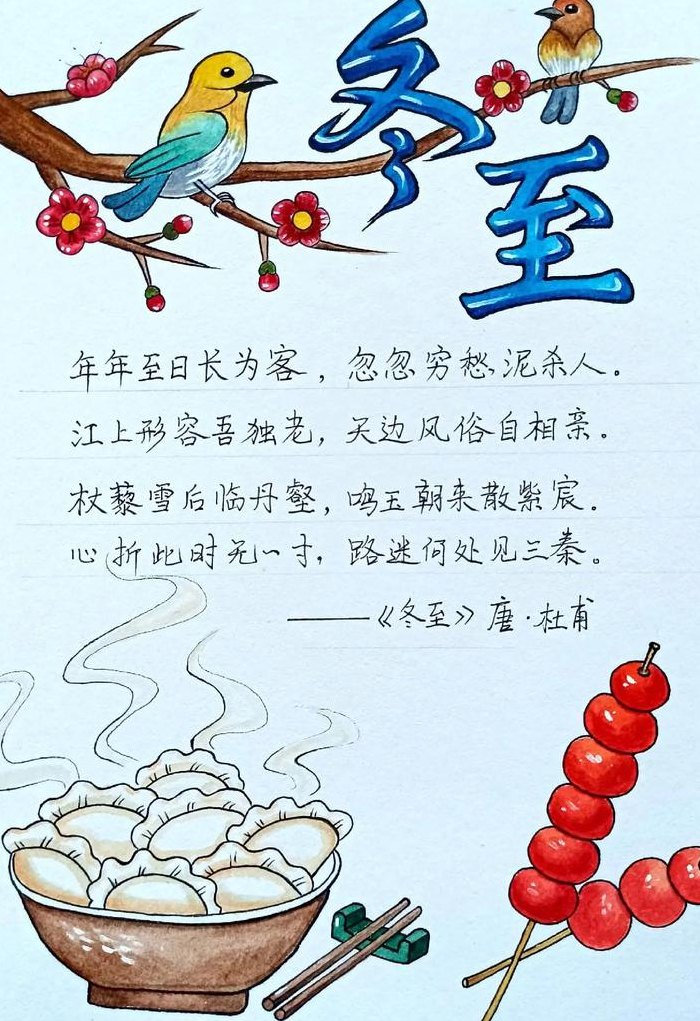 冬至
年年至日长为客，忽忽穷愁泥杀人。
江上形容吾独老，天边风俗自相亲。
杖藜雪后临丹壑，鸣玉朝来散紫宸。
心折此时无一寸，路迷何处见三秦。
——《冬至》唐·杜甫